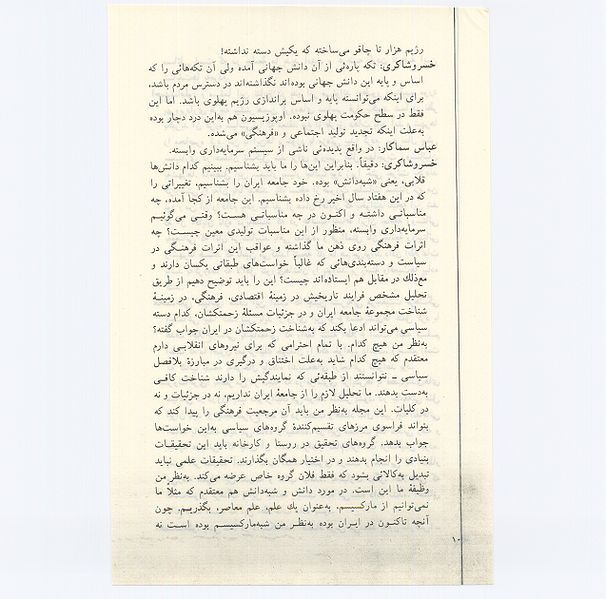 رژیم هزار تا چاقو می‌ساخته که یکیش دسته نداشته!
خسروشاکری: تکه پاره‌ئی از آن دانش جهانی آمده ولی آن تکه‌هائی را که
اساس و پایه این دانش جهانی بوده‌اند نگذاشته‌اند در دسترس مردم باشد،
برای اینکه می‌توانسته پایه و اساس براندازی رژیم پهلوی باشد. اما این
فقط در سطح حکومت پهلوی نبوده. اوپوزیسیون هم به‌این درد دچار بوده
به‌علت اینکه تجدید تولید اجتماعی و «فرهنگی» می‌شده.
عباس سماکار: در واقع پدیده‌ئی ناشی از سیستم سرمایه‌داری وابسته.
خسروشاکری: دقیقاً. بنابراین این‌ها را ما باید بشناسیم. ببینیم کدام دانش‌ها
قلابی، یعنی «شبه‌دانش» بوده. خود جامعه ایران را بشناسیم، تغییراتی را
که در این هفتاد سال اخیر رخ داده بشناسیم. این جامعه از کجا آمده، چه
مناسباتی داشته و اکنون در چه مناسباتی هست؟ وقتی می‌گوئیم
سرمایه‌داری وابسته، منظور از این مناسبات تولیدی معین چیست؟ چه
اثرات فرهنگی روی ذهن ما گذاشته و عواقب این اثرات فرهنگی در
سیاست و دسته‌بندی‌هائی که غالباً خواست‌های طبقاتی یکسان دارند و
معذلك در مقابل هم ایستاده‌اند چیست؟ این را باید توضیح دهیم از طریق
تحلیل مشخص فرایند تاریخیش در زمینهٔ اقتصادی، فرهنگی، در زمینهٔ
شناخت مجموعهٔ جامعه ایران و در جزئیات مسئلهٔ زحمتکشان، کدام دسته
سیاسی می‌تواند ادعا بکند که به‌شناخت زحمتکشان در ایران جواب گفته؟
به‌نظر من هیچ کدام. با تمام احترامی که برای نیروهای انقلابی دارم
معتقدم که هیچ کدام شاید به‌علت اختناق و درگیری در مبارزهٔ بلافصل
سیاسی ــ نتوانستند از طبقه‌ئی که نمایندگیش را دارند شناخت کافی
به‌دست بدهند. ما تحلیل لازم را از جامعهٔ ایران نداریم، نه در جزئیات و نه
در کلیات. این مجله به‌نظر من باید آن مرجعیت فرهنگی را پیدا کند که
بتواند فراسوی مرزهای تقسیم‌کنندهٔ گروه‌های سیاسی به‌این خواست‌ها
جواب بدهد. گروه‌های تحقیق در روستا و کارخانه باید این تحقیقات
بنیادی را انجام بدهند و در اختیار همگان بگذارند. تحقیقات علمی نباید
تبدیل به‌کالائی بشود که فقط فلان گروه خاص عرضه می‌کند. به‌نظر من
وظیفهٔ ما این است. در مورد دانش و شبه‌دانش هم معتقدم که مثلاً ما
نمی‌توانیم از مارکسیسم، به‌عنوان یك علم، علم معاصر، بگذریم. چون
آنچه تاکنون در ایران بوده به‌نظر من شبه‌مارکسیسم بوده است نه
۱۰